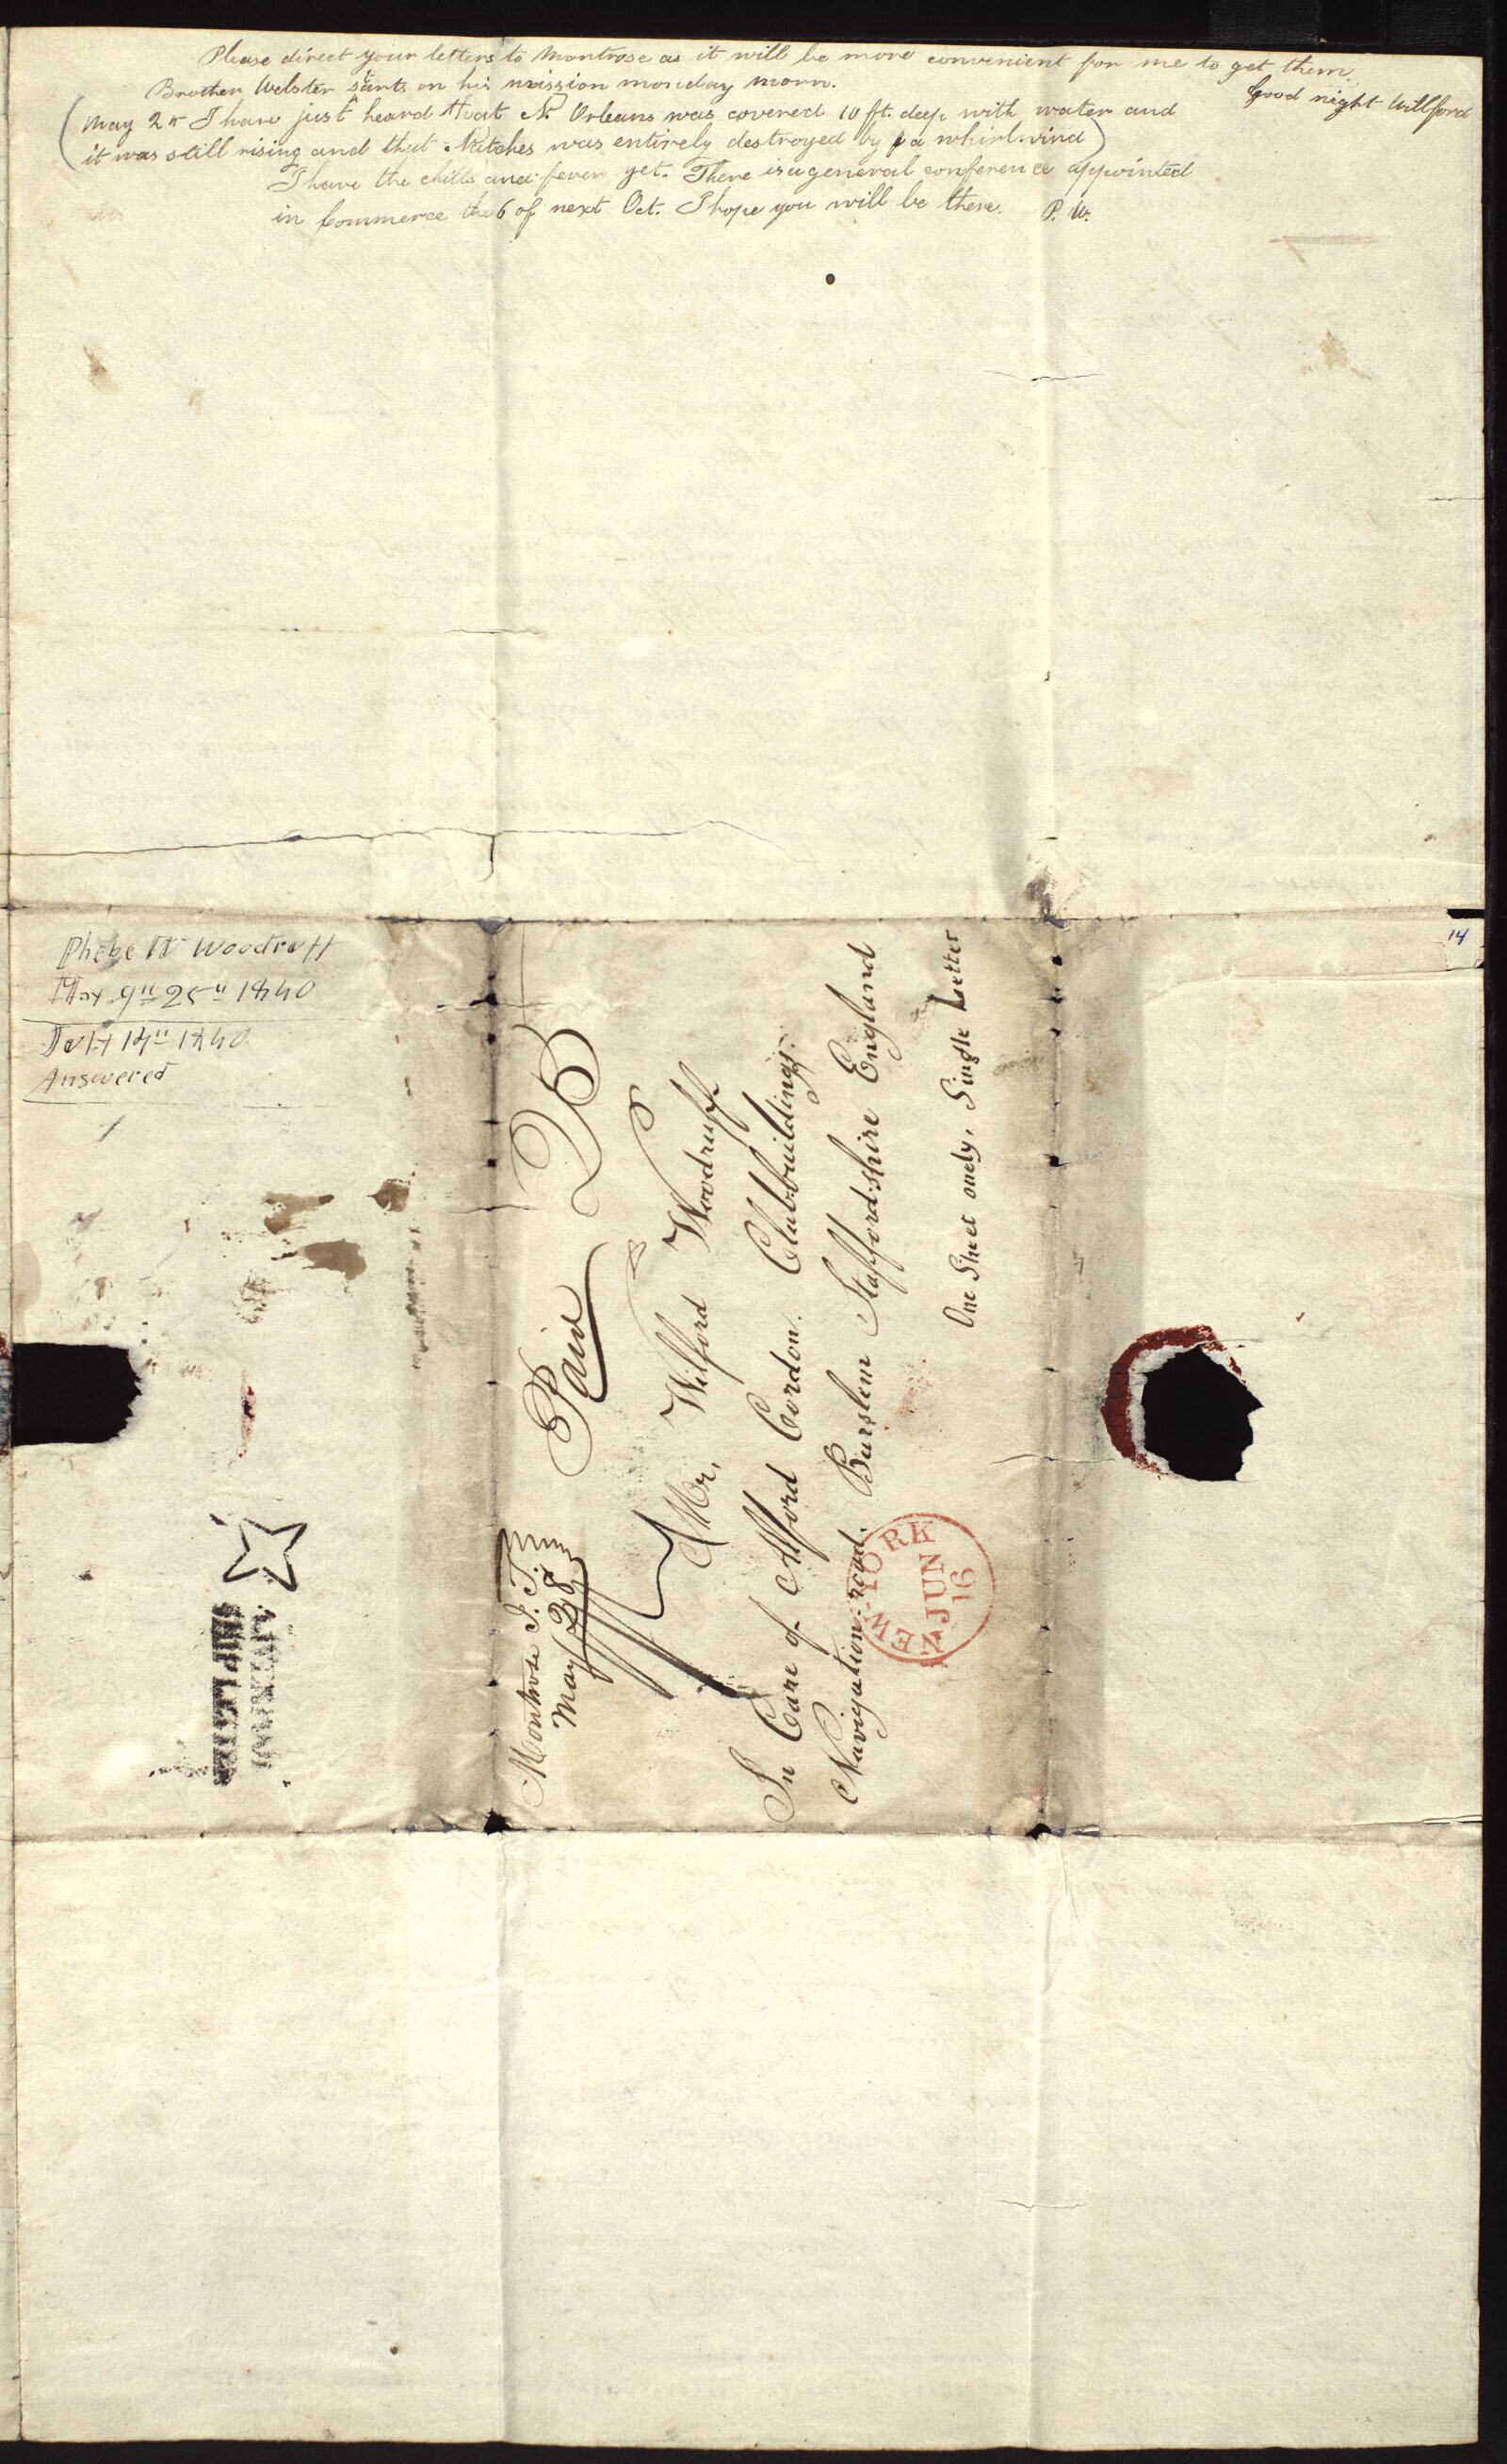 Please direct your letters to Montrose as it will be more convenient for me to get them.
Good night Willford
Brother Webster sarts on his mission monday morn.
(May 25 I have just heard that N. Orleans was covered 10 ft. deep with water and
it was still rising and that Natches was entirely destroyed by a whirlwind)
I have the chills and fever yet. There is a general conference appointed
in Commerce the 6 of next Oct. I hope you will be there. P. W.
14
Phebe W Woodruff
May 9th 25th 1840
14th 1840
Answered
Montrose I. T.
May 28
Paid 25
Mr, Wilford Woodruff
In Care of Alford Cordon. Clubbuildings.
Navigation road. Burslem Staffordshire England
One Sheet onely, Single Letter
NEW-YORK
JUN
16
LIVERPOOL
SHIP LETTER